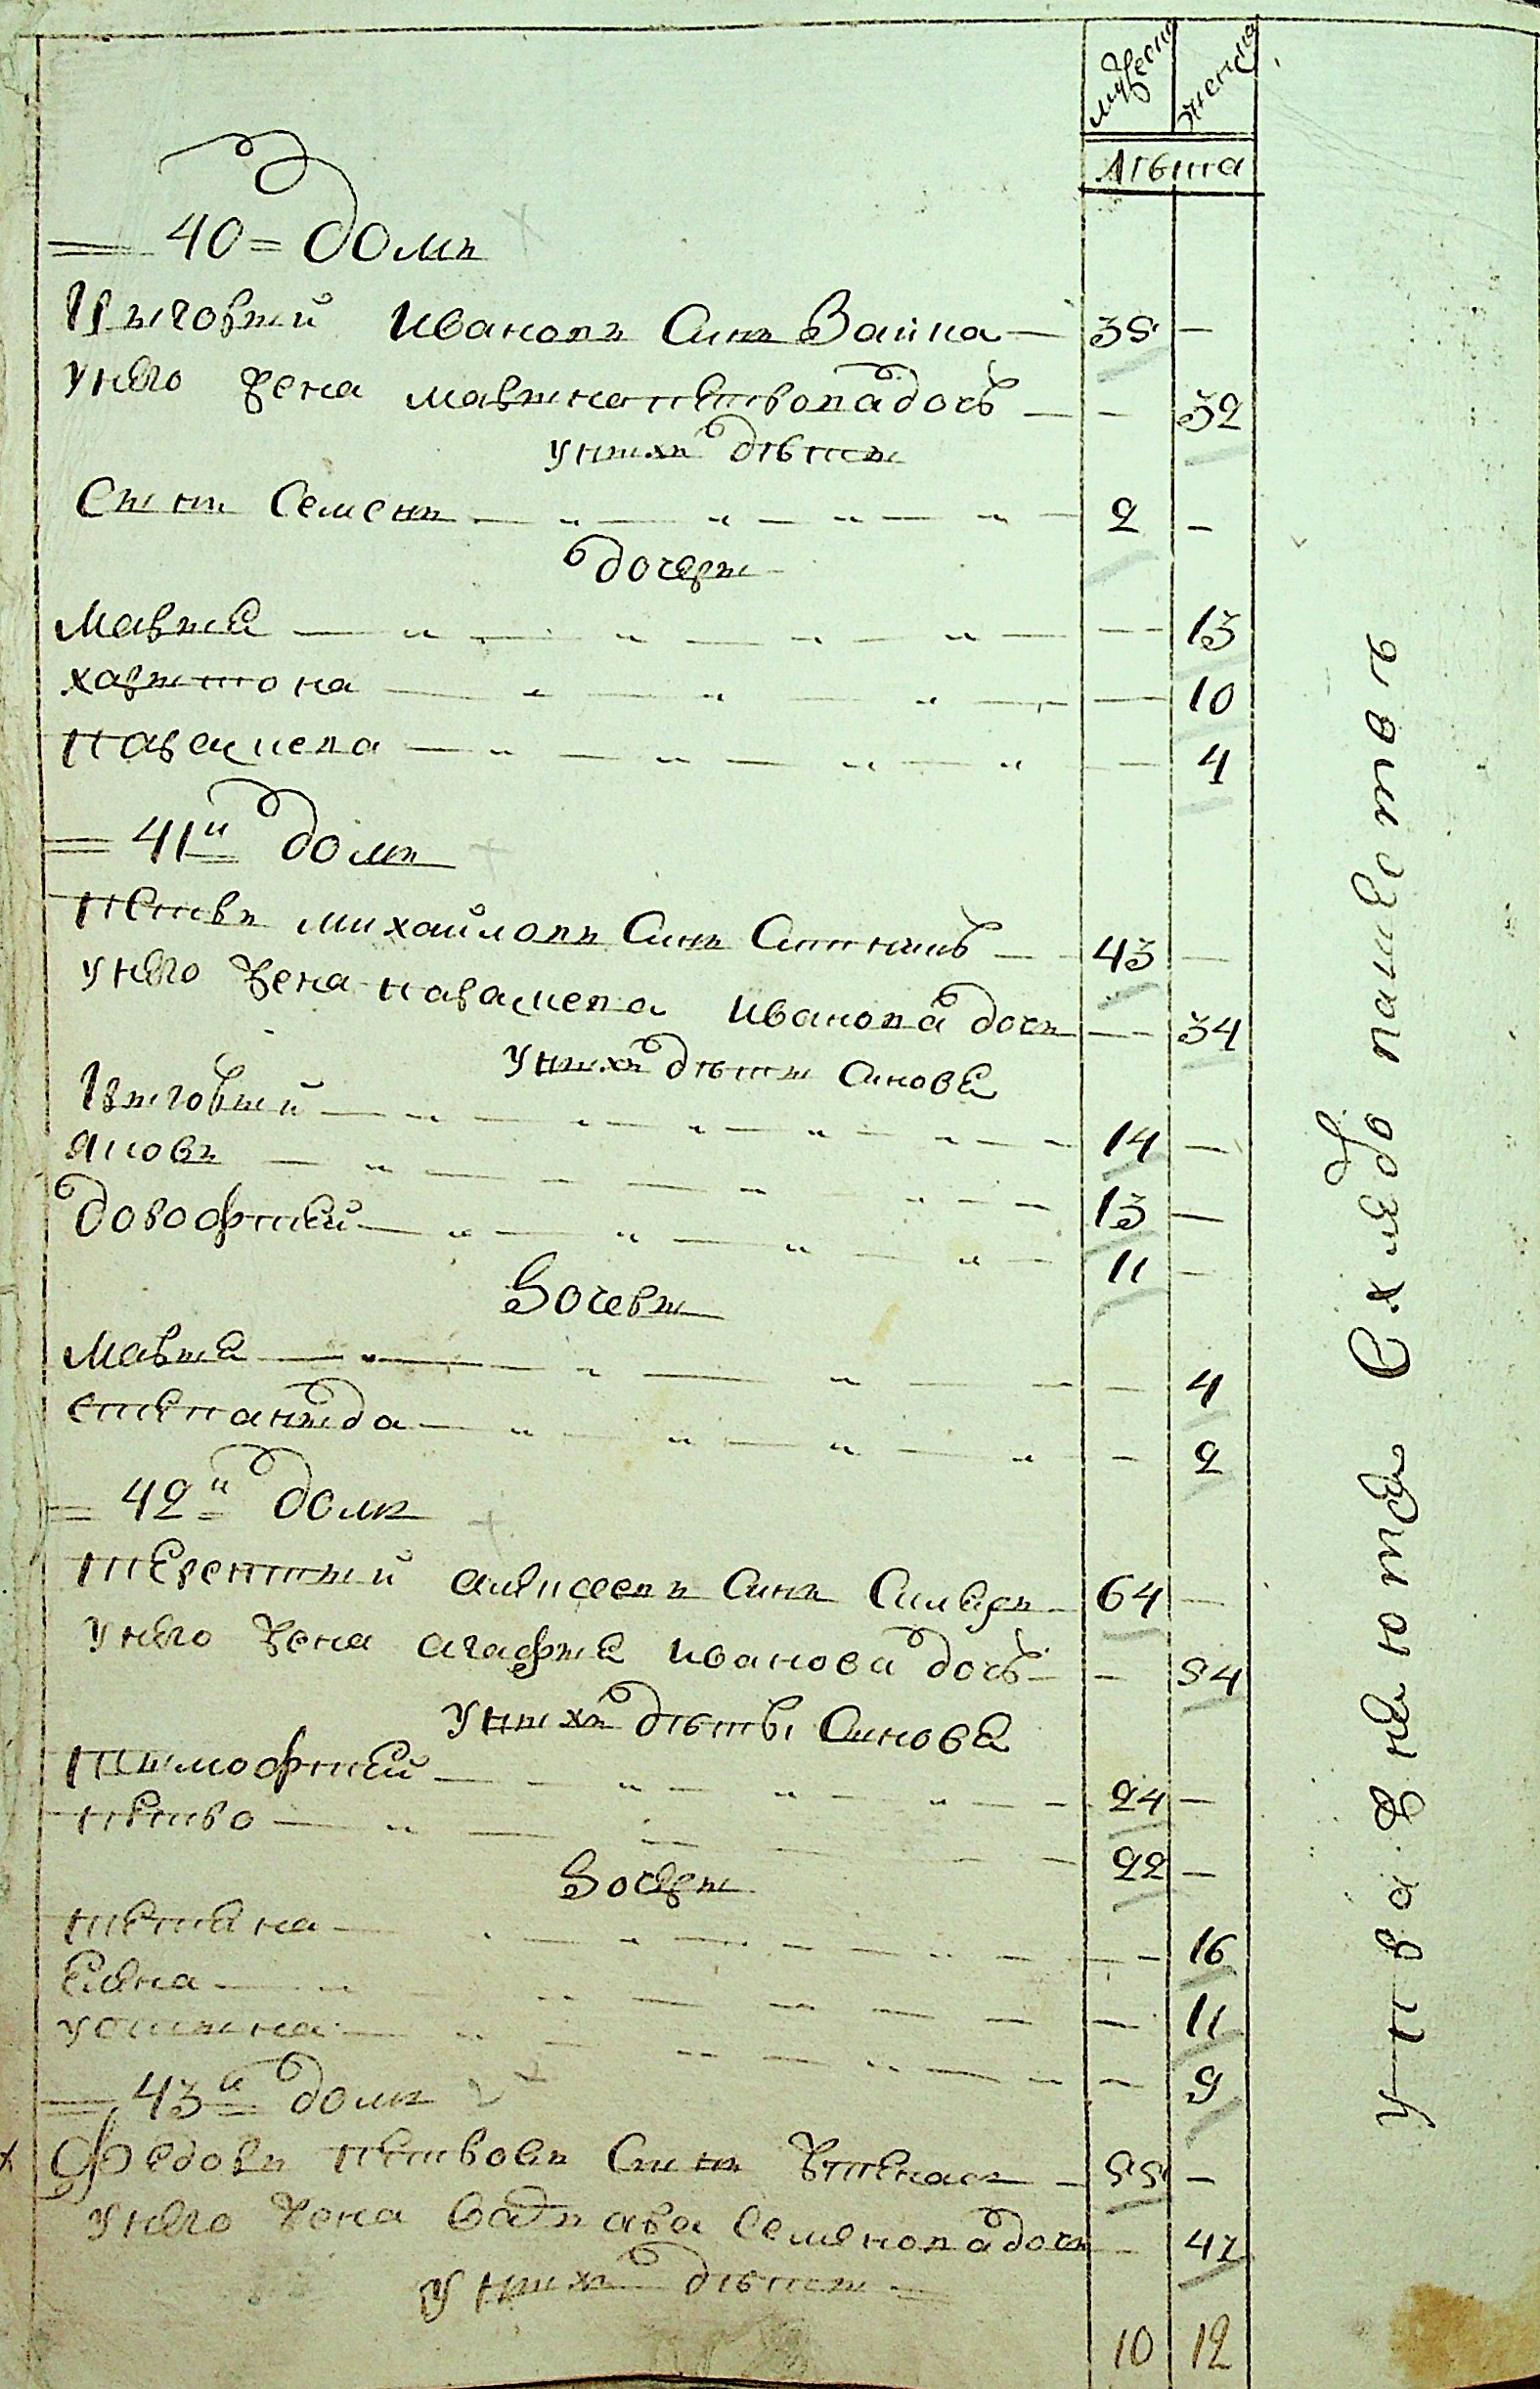 мужеска женска
лѣта
40 = домъ
Григорий Ивановъ Синъ Заика — 35 —
у него жена Марина петрова дочь — — 32
у нихъ дѣти
Синъ Семенъ — 2 —
дочери
Мария — — 13
харитона — — 10
параскева — — 4
41й домъ
петръ михайловъ Синъ — 43 —
у него жена параскева иванова дочь — — 34
у нихъ дѣти Синове
Григорий — 14 —
Яковъ — 13 —
дорофтей — 11 —
дочери
Мария — — 4
степанида — — 2
42й домъ
терентий алексеевъ Синъ — 64 —
у него жена агафия иванова дочь — — 54
у нихъ дѣты Синове
тимофтей — 24 —
петро — 22 —
дочери
тетяна — — 16
Елена — — 11
устина — — 9
43й домъ
Федоръ петровъ Синъ — 55 —
у него жена варвара семенова дочь — — 47
у нихъ дѣти —
10 12